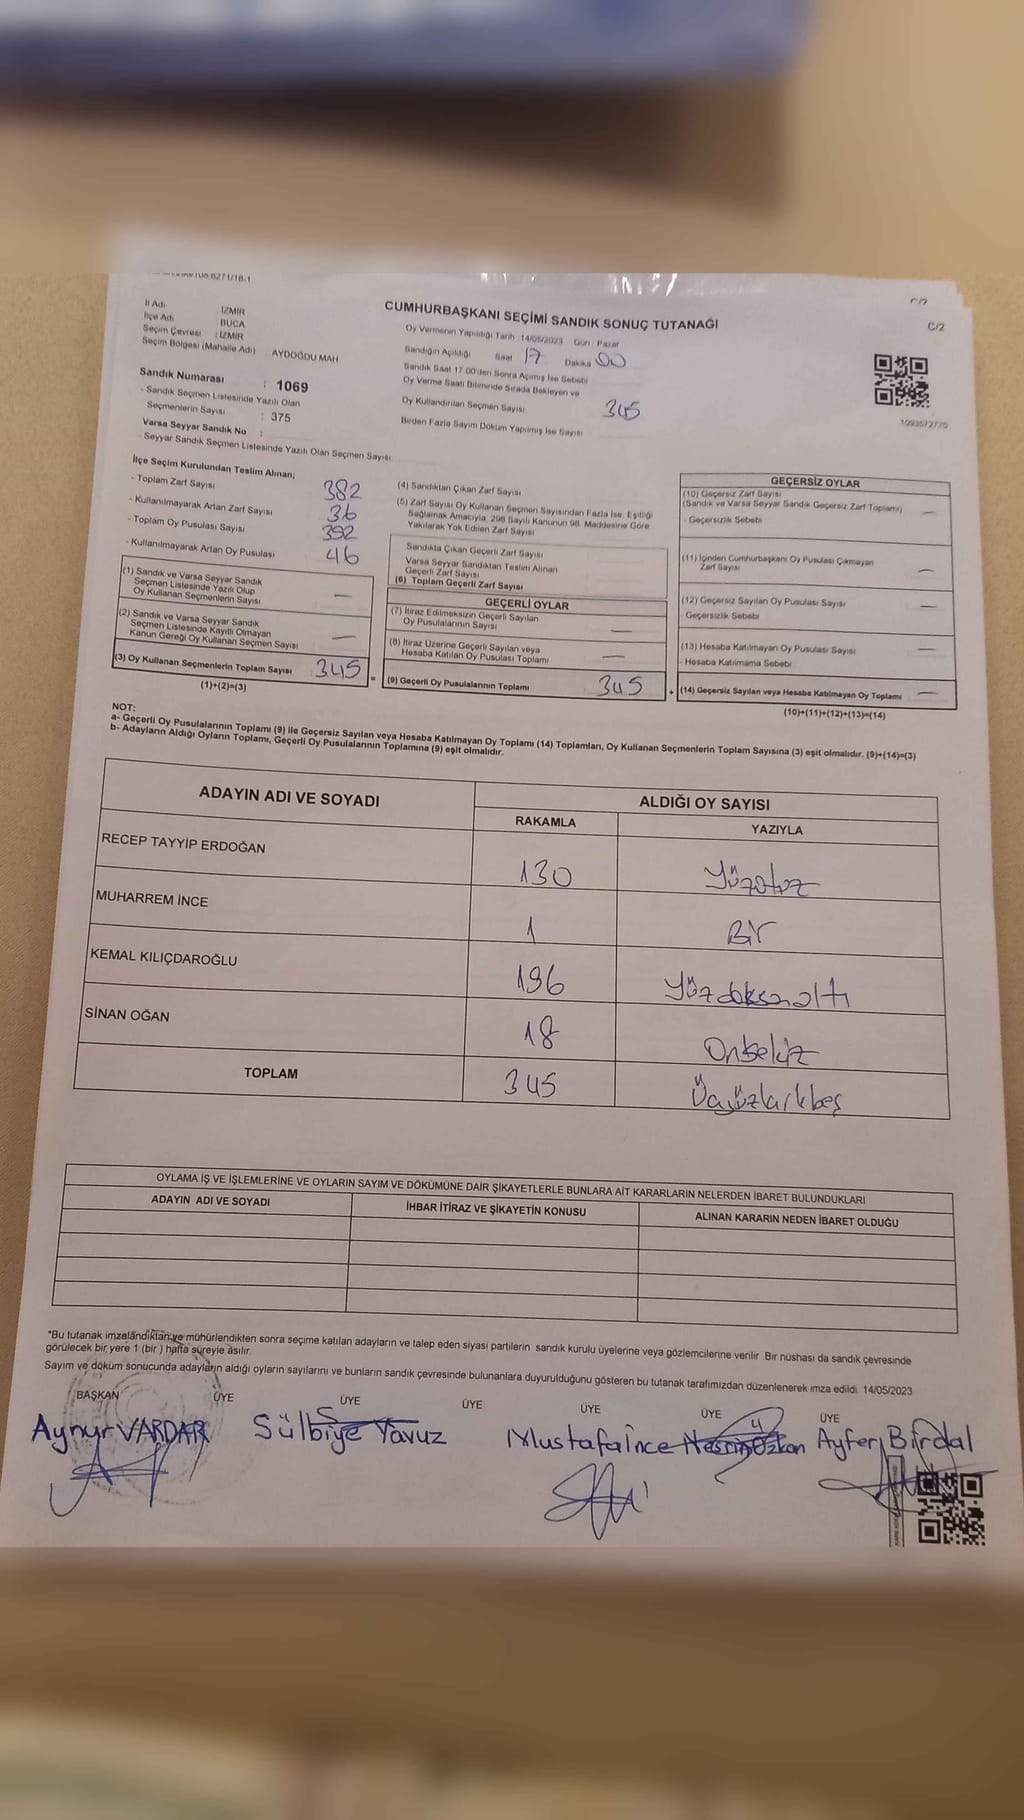 C/2
İl Adı : İZMİR
İlçe Adı : BUCA
Seçim Çevresi : İZMİR
Seçim Bölgesi (Mahalle Adı) AYDOĞDU MAH
Sandık Numarası : 1069
- Sandık Seçmen Listesinde Yazılı Olan
Seçmenlerin Sayısı : 375
Varsa Seyyar Sandık No :
- Seyyar Sandık Seçmen Listesinde Yazılı Olan Seçmen Sayısı
CUMHURBAŞKANI SEÇİMİ SANDIK SONUÇ TUTANAĞI
Oy Vermenin Yapıldığı Tarih 14/05/2023 Gün Pazar
Sandığın Açıldığı Saat 17 Dakika 00
Sandık Saat 17 00'den Sonra Açımış İse Sebebi
Oy Verme Saati Bitiminde Sırada Bekleyen ve
Oy Kullandırılan Seçmen Sayısı 345
Birden Fazla Sayım Döküm Yapılmış İse Sayısı
1093572770
İlçe Seçim Kurulundan Teslim Alınan;
- Toplam Zarf Sayısı 382
- Kullanılmayarak Artan Zarf Sayısı 36
- Toplam Oy Pusulası Sayısı 392
- Kullanılmayarak Artan Oy Pusulası 46
(1) Sandık ve Varsa Seyyar Sandık
Seçmen Listesinde Yazılı Olup
Oy Kullanan Seçmenlerin Sayısı —
(2) Sandık ve Varsa Seyyar Sandık
Seçmen Listesinde Kayıtlı Olmayan
Kanun Gereği Oy Kullanan Seçmen Sayısı —
(3) Oy Kullanan Seçmenlerin Toplam Sayısı 345 =
(1)+(2)=(3)
(4) Sandıktan Çıkan Zarf Sayısı
(5) Zarf Sayısı Oy Kullanan Seçmen Sayısından Fazla İse, Eşitliği
Sağlamak Amacıyla, 298 Sayılı Kanunun 98. Maddesine Göre
Yakılarak Yok Edilen Zarf Sayısı
Sandıkta Çıkan Geçerli Zarf Sayısı
Varsa Seyyar Sandıktan Teslim Alınan
Geçerli Zarf Sayısı
(6) Toplam Geçerli Zarf Sayısı
GEÇERLİ OYLAR
(7) İtiraz Edilmeksizin Geçerli Sayılan
Oy Pusulalarının Sayısı —
(8) İtiraz Üzerine Geçerli Sayılan veya
Hesaba Katılan Oy Pusulası Toplamı —
(9) Geçerli Oy Pusulalarının Toplamı 345 +
GEÇERSİZ OYLAR
(10) Geçersiz Zarf Sayısı
(Sandık ve Varsa Seyyar Sandık Geçersiz Zarf Toplamı) —
- Geçersizlik Sebebi
(11) İçinden Cumhurbaşkanı Oy Pusulası Çıkmayan
Zarf Sayısı —
(12) Geçersiz Sayılan Oy Pusulası Sayısı —
- Geçersizlik Sebebi
(13) Hesaba Katılmayan Oy Pusulası Sayısı —
- Hesaba Katılmama Sebebi
(14) Geçersiz Sayılan veya Hesaba Katılmayan Oy Toplamı —
(10)+(11)+(12)+(13)=(14)
NOT:
a- Geçerli Oy Pusulalarının Toplamı (9) ile Geçersiz Sayılan veya Hesaba Katılmayan Oy Toplamı (14) Toplamları, Oy Kullanan Seçmenlerin Toplam Sayısına (3) eşit olmalıdır. (9)+(14)=(3)
b- Adayların Aldığı Oyların Toplamı, Geçerli Oy Pusulalarının Toplamına (9) eşit olmalıdır.
ADAYIN ADI VE SOYADI ALDIĞI OY SAYISI
RAKAMLA YAZIYLA
RECEP TAYYİP ERDOĞAN 130 Yüzotuz
MUHARREM İNCE 1 Bir
KEMAL KILIÇDAROĞLU 196 Yüzdoksanaltı
SİNAN OĞAN 18 Onsekiz
TOPLAM 345 Üçyüzkırkbeş
OYLAMA İŞ VE İŞLEMLERİNE VE OYLARIN SAYIM VE DÖKÜMÜNE DAİR ŞİKAYETLERLE BUNLARA AİT KARARLARIN NELERDEN İBARET BULUNDUKLARI
ADAYIN ADI VE SOYADI İHBAR İTİRAZ VE ŞİKAYETİN KONUSU ALINAN KARARIN NEDEN İBARET OLDUĞU
*Bu tutanak imzalandıktan ve mühürlendikten sonra seçime katılan adayların ve talep eden siyasi partilerin sandık kurulu üyelerine veya gözlemcilerine verilir Bir nüshası da sandık çevresinde
görülecek bir yere 1 (bir) hafta süreyle asılır
Sayım ve döküm sonucunda adayların aldığı oyların sayılarını ve bunların sandık çevresinde bulunanlara duyurulduğunu gösteren bu tutanak tarafımızdan düzenlenerek imza edildi. 14/05/2023
BAŞKAN ÜYE ÜYE ÜYE ÜYE ÜYE ÜYE
Aynur VARDAR Sülbiye Yavuz Mustafa İnce Nesrin Özkan Ayfer Birdal